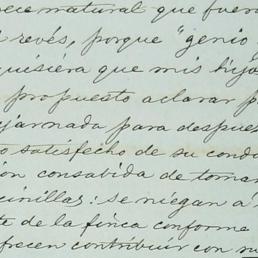 ece natural que fuera
l revés, porque "genio
quisiera que mis hijo
propuesto aclarar p
ejarnada para despues
o satisfecho de su condu
ión consabida de tomar
cinillas: se niegan a
te de la finca conforme
frecen contribuir con su